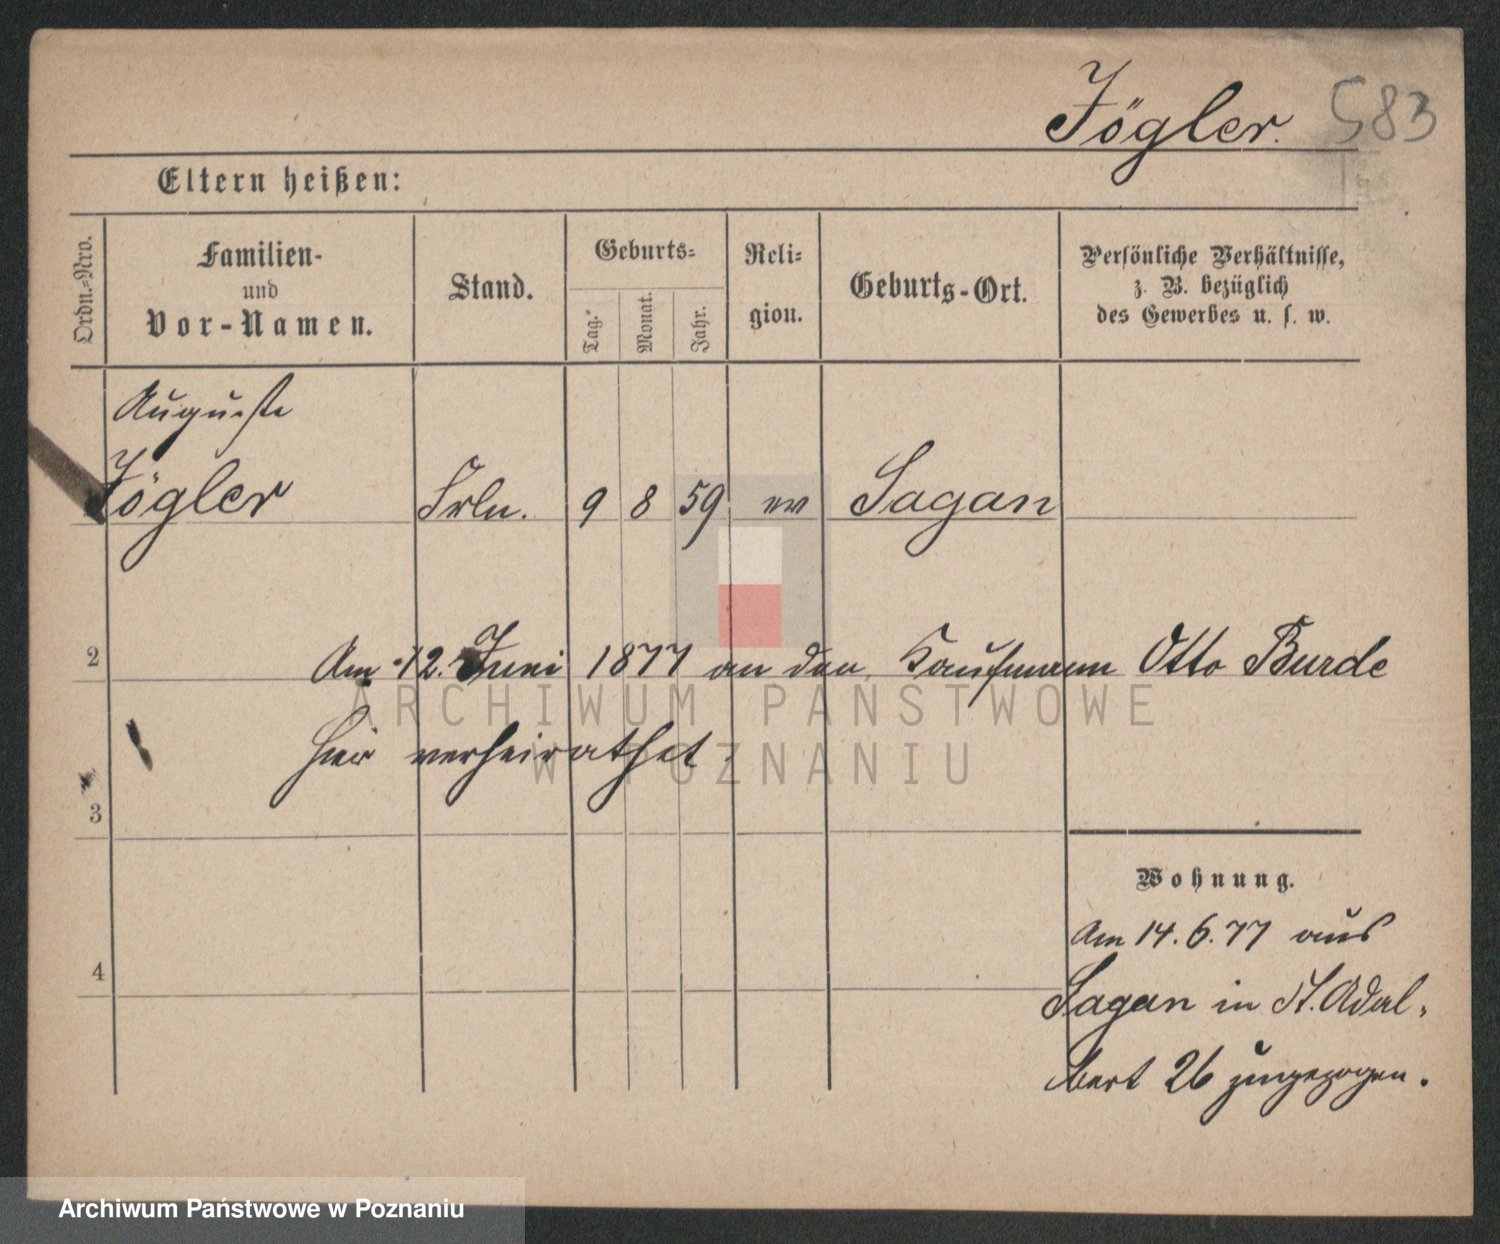 Jögler. 583
Eltern heißen:
Ordn.-Nro.
Familien-
und
Vor-Namen.
Stand.
Geburts-
Tag.
Monat.
Jahr.
Reli-
gion.
Geburts-Ort.
Persönliche Verhältnisse,
z. B. bezüglich
des Gewerbes u. s. w.
Auguste
Jögler Frln. 9 8 59 ev Sagan
2
Am 12. Juni 1877 an den Kaufmann Otto Burde
hier verheirathet.
3
Wohnung.
Am 14. 6. 77 aus
4
Sagan in St. Adal-
bert 26 zugezogen.
ARCHIWUM PAŃSTWOWE
W POZNANIU
Archiwum Państwowe w Poznaniu